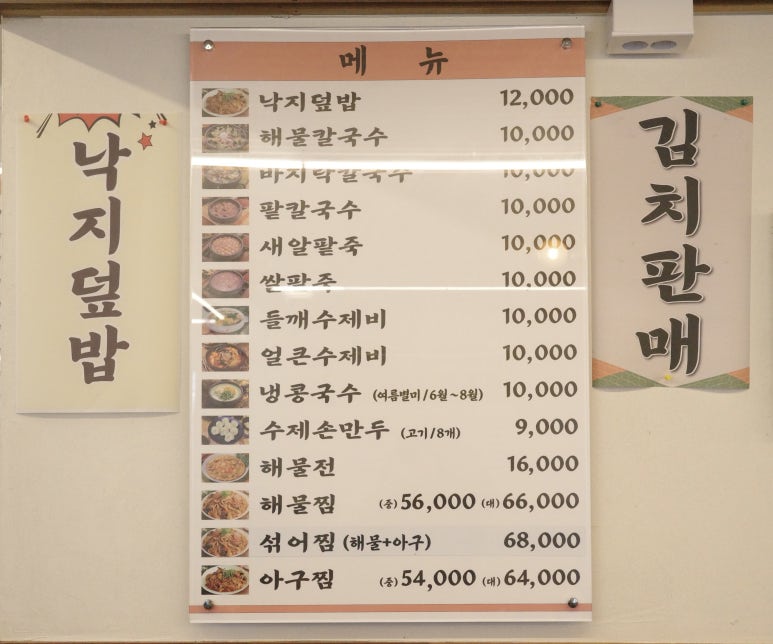 낙지덮밥
메 뉴
낙지덮밥 12,000
해물칼국수 10,000
바지락칼국수 10,000
팥칼국수 10,000
새알팥죽 10,000
쌀팥죽 10,000
들깨수제비 10,000
얼큰수제비 10,000
냉콩국수 (여름별미/6월~8월) 10,000
수제손만두 (고기/8개) 9,000
해물전 16,000
해물찜 (중)56,000 (대)66,000
섞어찜 (해물+아구) 68,000
아구찜 (중)54,000 (대)64,000
김치판매